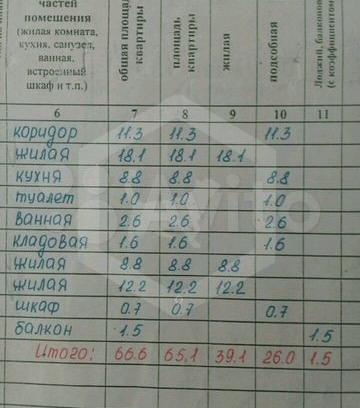 частей
помещения
(жилая комната,
кухня, санузел,
ванная,
встроенный
шкаф и т.п.)
общая площадь
квартиры
площадь
квартиры
жилая
подсобная
Лоджий, балконов
(с коэффициентом
6 7 8 9 10 11
коридор 11.3 11.3 11.3
жилая 18.1 18.1 18.1
кухня 8.8 8.8 8.8
туалет 1.0 1.0 1.0
ванная 2.6 2.6 2.6
кладовая 1.6 1.6 1.6
жилая 8.8 8.8 8.8
жилая 12.2 12.2 12.2
шкаф 0.7 0.7 0.7
балкон 1.5 1.5
Итого: 66.6 65,1 39.1 26.0 1.5
Avito